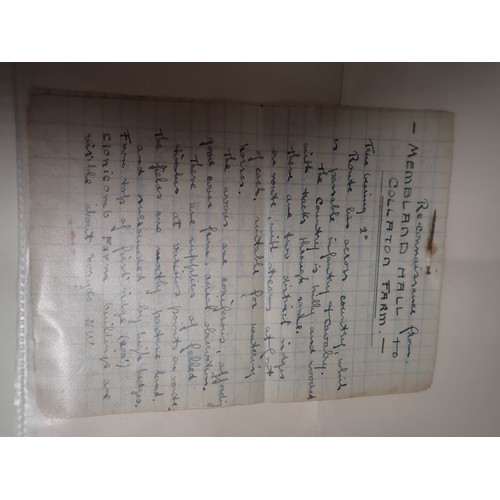 Reconnaissance from
- MEMBLAND HALL TO
COLLATON FARM. -
True bearing 2°
Route lies across country, which
is passable infantry & cavalry.
The Country is hilly and wooded
with tracks through
there are two distinct ridges
on route, with streams at foot
of each, suitable for watering
horses.
The woods are coniferous, affording
good cover from aerial observation.
There are supplies of felled
timber at various points on route.
The fields are mostly pasture land
and surrounded by high hedges.
From top of first ridge
Farm buildings are
visible about